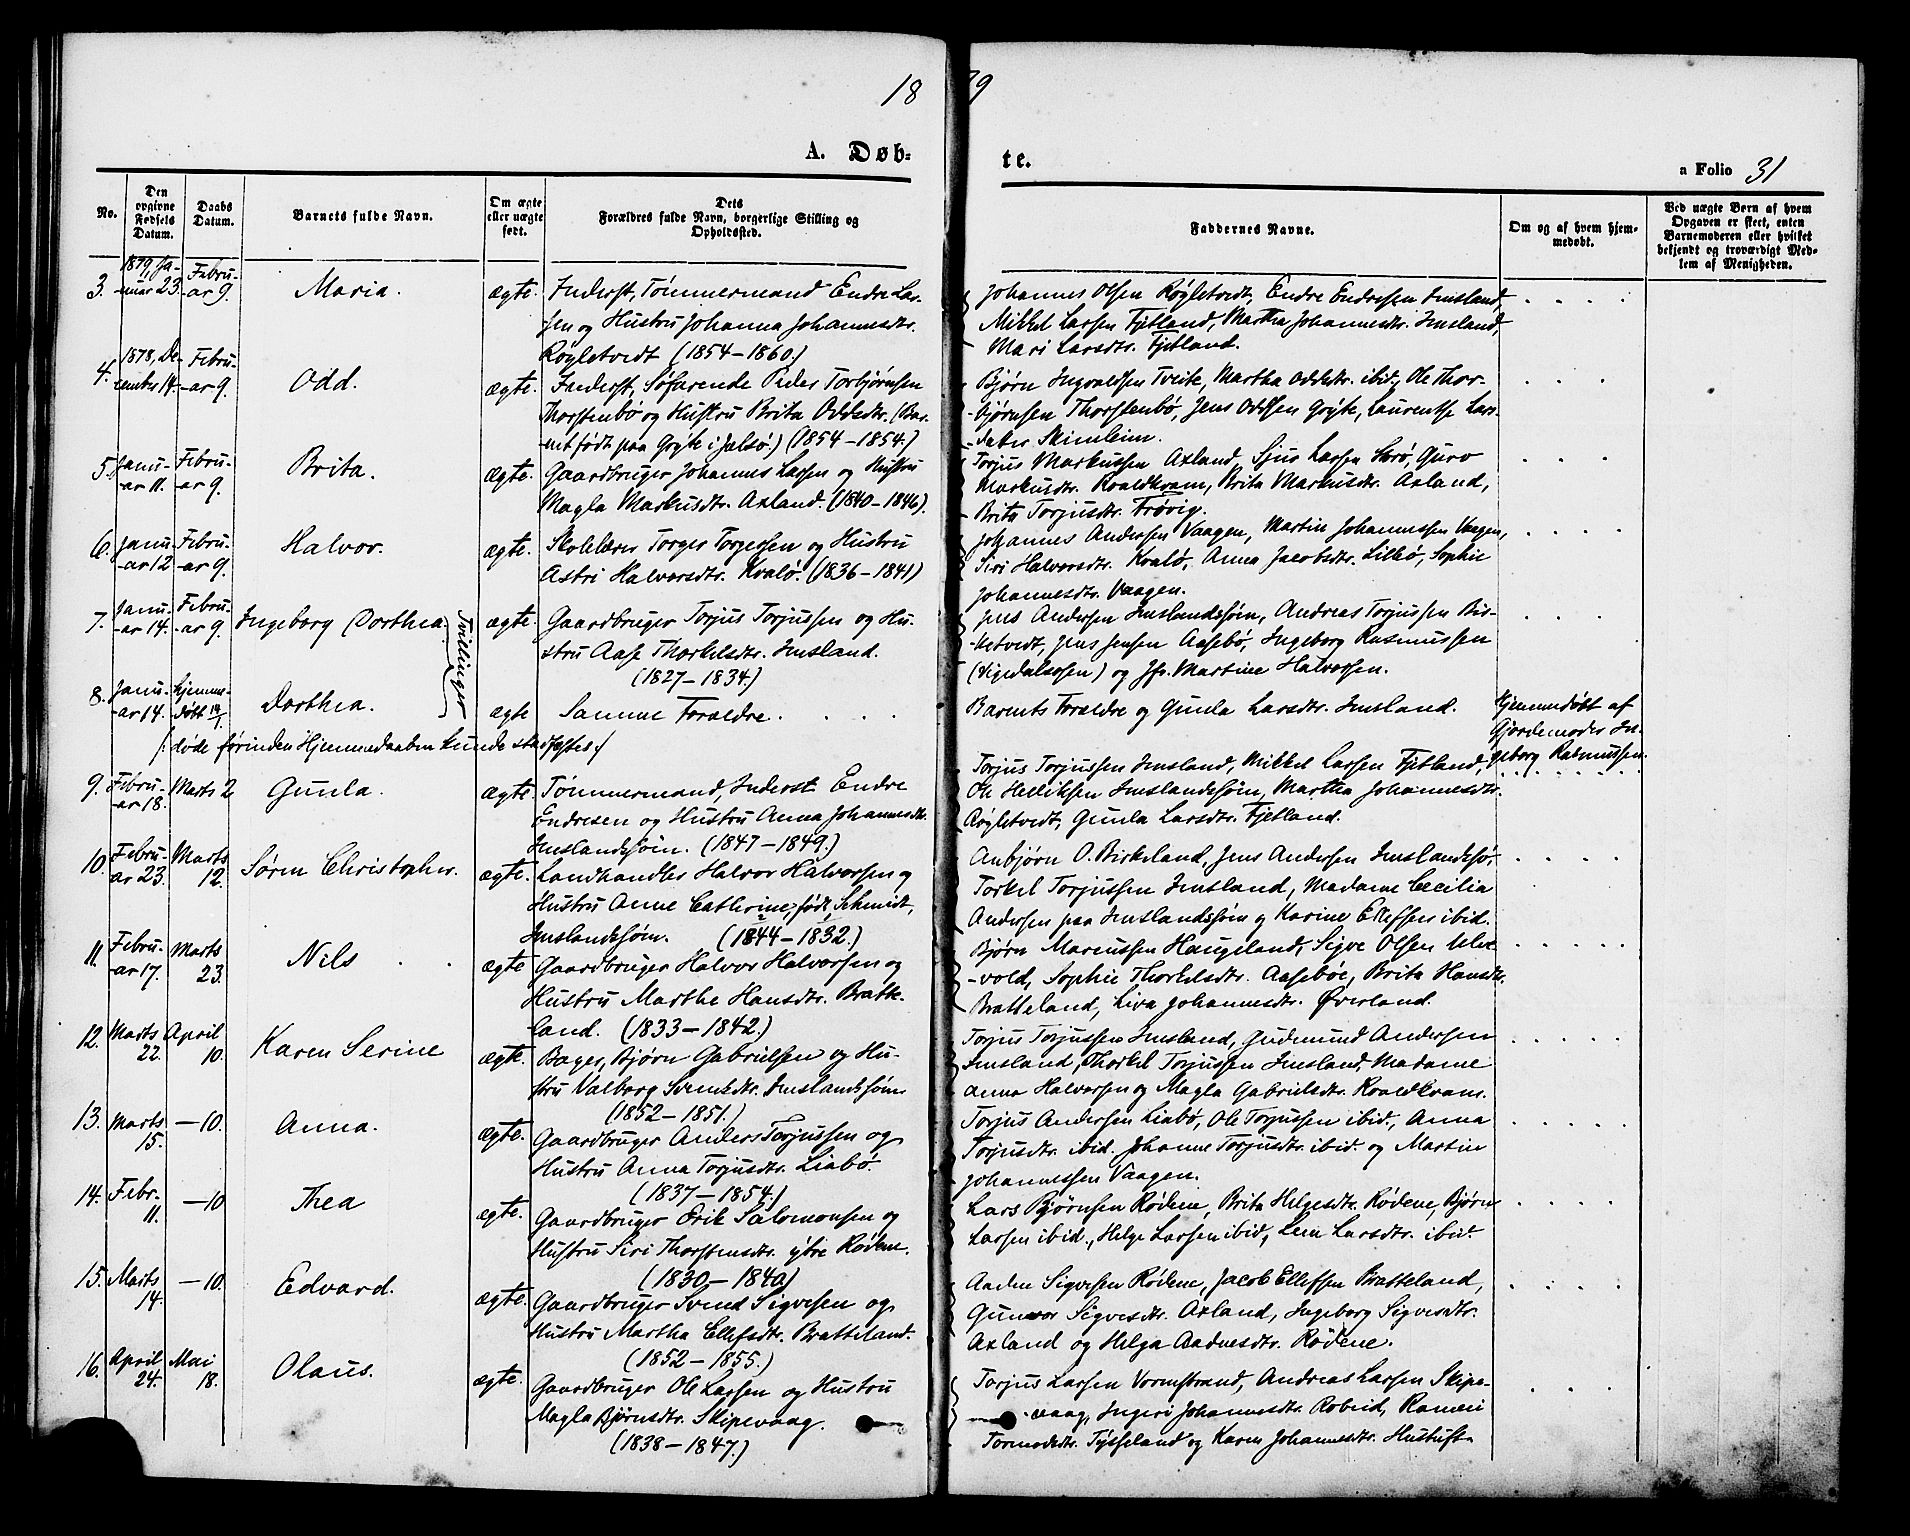 1879
A. Døb-
te.
a Folio 31
No.
Den opgivne Fødsels Datum.
Daabs Datum.
Barnets fulde Navn.
Om ægte eller uægte født.
Dets Forældres fulde Navn, borgerlige Stilling og Opholdssted.
Faddernes Navne.
Om og af hvem hjemmedøbt.
Ved uægte Børn af hvem Opgaven er skeet, enten Barnemoderen eller hvilket bekjendt og troværdigt Medlem af Menigheden.
3. 1879, Januar 23. Februar 9. Maria. ægte. Inderst, Tømmermand Endre Lar-
sen og Hustru Johanna Johannesdtr.
Røgletvedt (1854-1860.)
Johannes Olsen Røgletvedt, Endre Endresen Imsland,
Mikkel Larsen Fjetland, Martha Johannesdtr. Imsland,
Mari Larsdtr. Fjetland.
4. 1878, December 14. Februar 9. Odd. ægte. Inderst, Søfarende Peder Torbjørnsen
Thorstenbø og Hustru Brita Oddsdtr. (Bar-
net født paa Grýte i Jelsø.) (1854-1854.)
Bjørn Ingvaldsen Tveite, Martha Oddsdtr. ibid., Ole Thor-
bjørnsen Thorstenbø, Jens Oddsen Grýte, Laurentse Lars-
datter
5. Januar 11. Februar 9. Brita. ægte. Gaardbruger Johannes Larsen og Hustru
Magla Markusdtr. Axland. (1840-1846).
Torjus Markussen Axland, Sjur Larsen Guro
Markusdtr. Roaldkvam, Brita Markusdtr. Axland,
Brita Torjusdtr. Frøvig.
6. Januar 12 Februar 9. Halvor. ægte. Skolelærer Torger Torgersen og Hustru
Astri Halvorsdtr. Kvalø. (1836-1841)
Johannes Andersen Vaagen, Martin Johannessen Vaagen,
Siri Halvorsdtr. Kvalø, Anna Jacobsdtr. Liebø, Sophie
Johannesdtr. Vaagen.
7. Januar 14. Februar 9. Ingeborg Dorthea. Tvillinger ægte. Gaardbruger Torjus Torjussen og Hu-
stru Aase Thorkelsdtr. Imsland.
(1827-1834.)
Jens Andersen Imslandssøin, Andreas Torjussen Bis-
ketvedt, Jens Jensen Aasebø, Ingeborg Rasmussen
og Jfr. Martine Halvorsen.
8. Januar 14. hjemmedøbt 14/1. Dorthea. ægte Samme Forældre.
(døde førinden Hjemmedaaben kunde stadfæstes.)
Barnets Forældre og Gunla Larsdtr. Imsland.
Hjemmedøbt af
Gjordemoder In-
geborg Rasmussen.
9. Februar 18. Marts 2 Gunla. ægte. Tømmermand, Inderst Endre
Endresen og Hustru Anna Johannesdtr.
Imslandssøin. (1847-1849.)
Torjus Torjussen Imsland, Mikkel Larsen Fjetland,
Ole Imslandssøin, Martha Johannesdtr.
Røgletvedt, Gunla Larsdtr. Fjetland.
10. Februar 23. Marts 12. Søren Christopher. ægte. Landhandler Halvor Halvorsen og
Hustru Anne Cathrine, født Schmidt,
Imslandssøin. (1844-1832.)
Anbjørn O. Birkeland, Jens Andersen Imslandssø.
Torkel Torjussen Imsland, Madame Cecilia
Andersen paa Imslandssøin og Karine Ellefsen ibid.
11. Februar 17. Marts 23. Nils ægte Gaardbruger Halvor Halvorsen og
Hustru Marthe Hansdtr. Bratte-
land. (1833-1842.)
Bjørn Marcussen Haugeland, Sigve Olsen Ulve-
vold, Sophie Thorkelsdtr. Aasebøe, Brita Hansdtr.
Bratteland, Liva Johannesdtr. Øverland.
12. Marts 22. April 10. Karen Serine ægte. Bager, Bjørn Gabrielsen og Hu-
stru Valborg Svendsdtr. Imslandssøin
(1852-1851.)
Torjus Torjussen Imsland, Gudmund Andersen
Imsland, Thorkel Torjussen Imsland, Madame
Anna Halvorsen og Magla Gabrielsdtr. Roaldkvam.
13. Marts 15. -10. Anna. ægte. Gaardbruger Anders Torjussen og
Hustru Anna Torjusdtr. Liabø.
(1837-1854.)
Torjus Andersen Liabø, Ole Torjussen ibid., Anna
Torjusdtr. ibid. Johanne Torjusdtr. ibid. og Martin
Johannessen Vaagen.
14. Febr. 11. -10 Thea ægte. Gaardbruger Erik Salomonsen og
Hustru Siri Thorstensdtr. ýtre Rødne.
(1830-1840)
Lars Bjørnsen Rødene, Brita Helgesdtr. Rødene, Bjørn
Larsen ibid., Helge Larsen ibid, Lem Larsdtr. ibid.
15. Marts 14. -10. Edvard. ægte. Gaardbruger Svend Sigvesen og
Hustru Martha Ellefsdtr. Bratteland.
(1852-1855.)
Aaden Sigvesen Rødene, Jacob Ellefsen Bratteland,
Gunvor Sigvesdtr. Axland, Ingeborg Sigvesdtr.
Axland og Helga Aadnesdtr. Rødene.
16. April 24. Mai 18. Olaus. ægte. Gaardbruger Ole Larsen og Hustru
Magla Bjørnsdtr. Skipevaag.
(1838-1847.)
Torjus Larsen Vormstrand, Andreas Larsen Skipe-
vaag, Ingeri Johannesdtr. Roveid,
Tormodsdtr. Týsseland og Karen Johannesdtr.